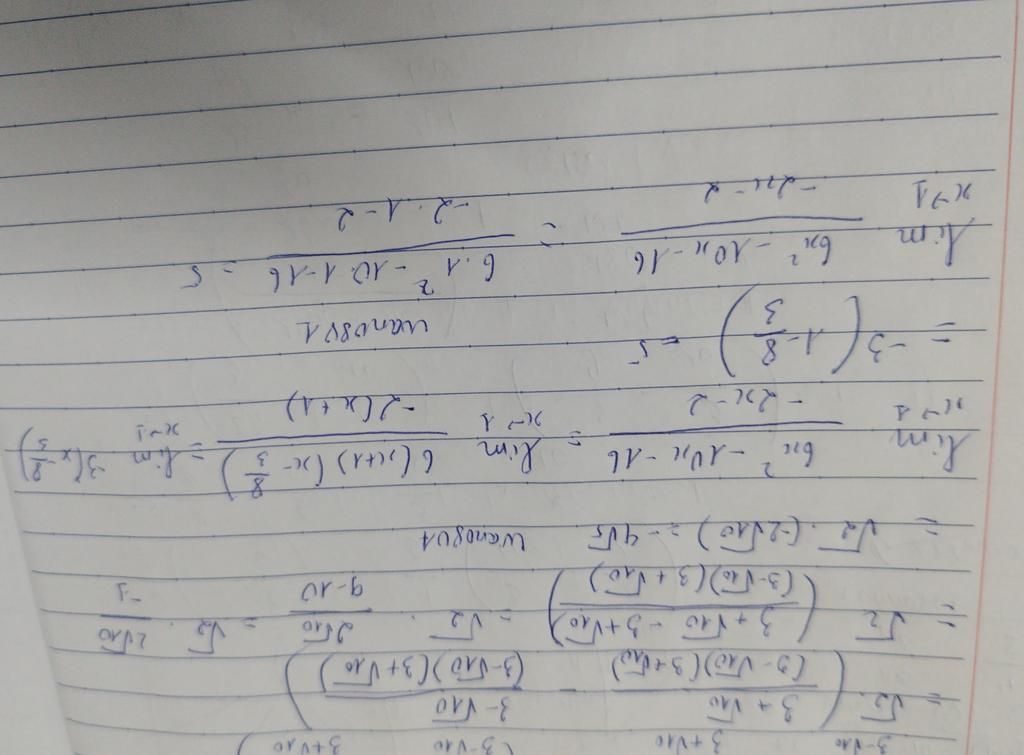 = √2 · ( (3 + √10)/((3 - √10)(3 + √10)) - (3 - √10)/((3 - √10)(3 + √10)) )
= √2 ( (3 + √10 - 3 + √10)/((3 - √10)(3 + √10)) ) = √2 · 2√10/(9 - 10) = √2 · 2√10/-1
= √2 · (-2√10) = -4√5
lim x→1 (6x² - 10x - 16)/(-2x - 2) = lim x→1 6(x+1)(x - 8/3)/(-2(x+1)) = lim x→1 -3(x - 8/3)
= -3 (1 - 8/3) = 5
lim x→1 (6x² - 10x - 16)/(-2x - 2) = (6·1² - 10·1 - 16)/(-2·1 - 2) = 5